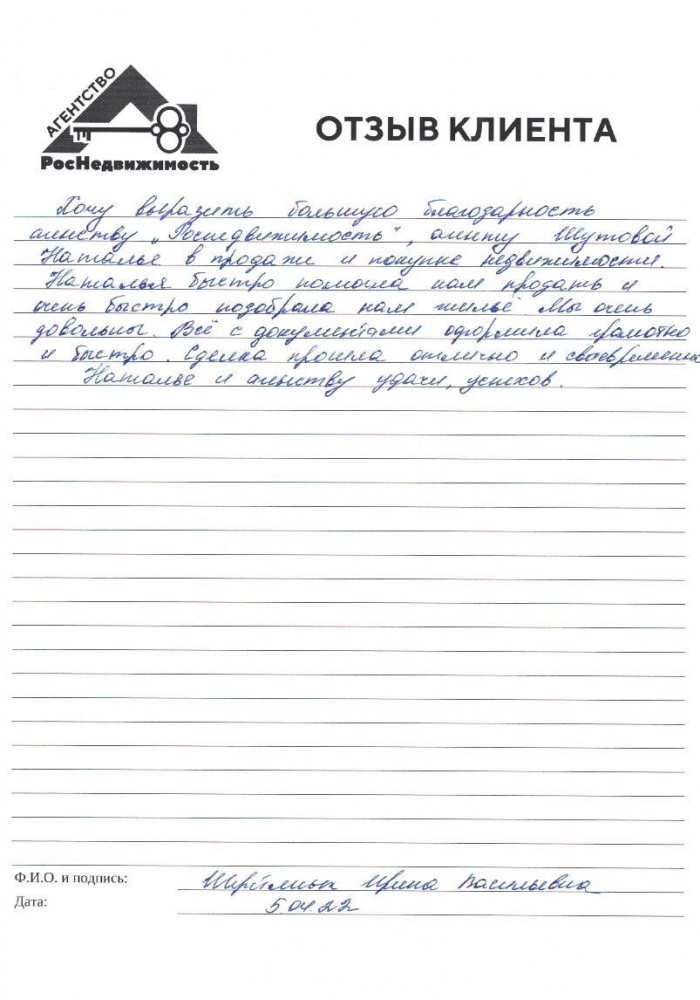 АГЕНТСТВО
РосНедвижимость
ОТЗЫВ КЛИЕНТА
Хочу выразить большую благодарность
агенству „Роснедвижимость“, агенту Шутовой
Наталье в продаже и покупке недвижимости.
Наталья быстро помогла нам продать и
очень быстро подобрала нам жильё. Мы очень
довольны. Всё с документами оформила грамотно
и быстро. Сделка прошла отлично и своевременно
Наталье и агенству удачи, успехов.
Ф.И.О. и подпись:
Ирина Васильевна
Дата:
5.04.22